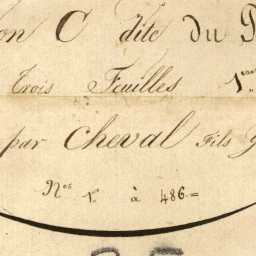 on C dite du P
Trois Feuilles 1ère
par Cheval Fils G
Nos 1. à 486=